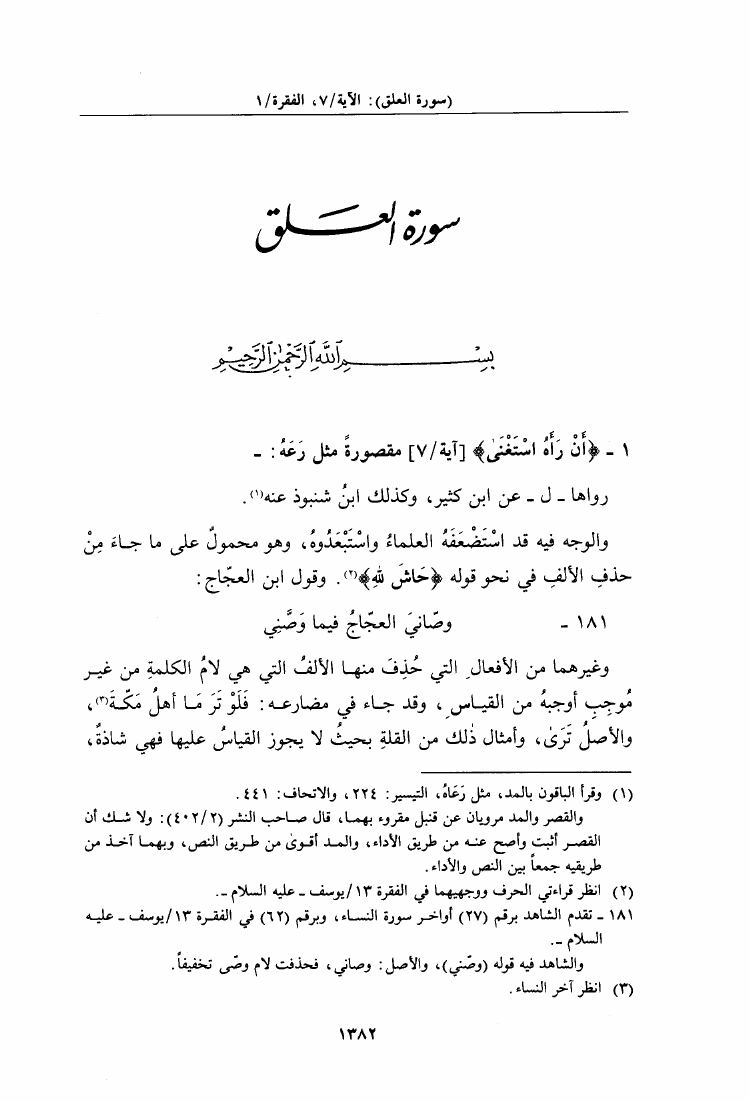 (سورة العلق): الآية/٧، الفقرة/١
سورة العلق
بسم الله الرحمن الرحيم
١ ـ ﴿أَنْ رَأَهُ اسْتَغْنَىٰ﴾ [آية/٧] مقصورةً مثل رَعَهُ: ـ
رواها ـ ل ـ عن ابن كثير، وكذلك ابنُ شنبوذ عنه(١).
والوجه فيه قد اسْتَضْعَفَهُ العلماءُ واسْتَبْعَدُوهُ، وهو محمولٌ على ما جاءَ مِنْ
حذفِ الألفِ في نحو قوله ﴿حَاشَ لِلهِ﴾(٢). وقول ابن العجّاج:
١٨١ ـ وصّانيَ العجّاجُ فيما وَصَّنِي
وغيرهما من الأفعالِ التي حُذِفَ منهـا الألفُ التي هي لامُ الكلمةِ من غيـر
مُوجِبٍ أوجبهُ من القيـاسِ، وقد جـاء في مضارعـه: فَلَوْ تَرَ مَـا أهلُ مَكّـةَ(٣)،
والأصلُ تَرَىٰ، وأمثال ذٰلك من القلةِ بحيثُ لا يجوز القياسُ عليها فهي شاذةٌ،
(١) وقرأ الباقون بالمد، مثل رَعَاهُ، التيسير: ٢٢٤، والاتحاف: ٤٤١.
والقصر والمد مرويان عن قنبل مقروء بهمـا، قال صـاحب النشر (٤٠٢/٢): ولا شـك أن
القصـر أثبت وأصح عنـه من طريق الأداء، والمـد أقـوىٰ من طـريق النص، وبهمـا آخـذ من
طريقيه جمعاً بين النص والأداء.
(٢) انظر قراءتي الحرف ووجهيهما في الفقرة ١٣/يوسف ـ عليه السلام ـ.
١٨١ ـ تقدم الشاهد برقم (٢٧) أواخـر سورة النسـاء، وبرقم (٦٢) في الفقـرة ١٣/يوسف ـ عليـه
السلام ـ.
والشاهد فيه قوله (وصّني)، والأصل: وصاني، فحذفت لام وصّى تخفيفاً.
(٣) انظر آخر النساء.
١٣٨٢